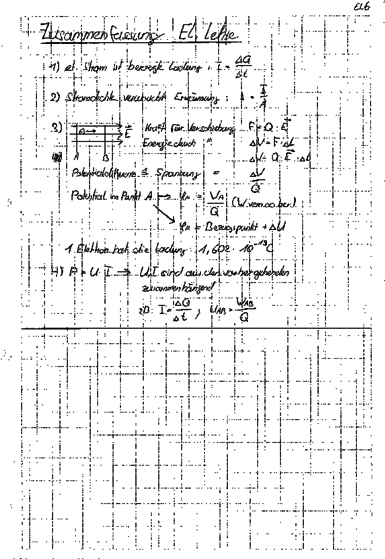 Zusammenfassung El. Lehre
1) el. Strom ist bewegte Ladung, I = ΔQ/Δt
2) Stromdichte verursacht Erwärmung = I/A
3) E Kraft für Verschiebung F = Q · E
Energie durch " ΔV = F · Δl
A B ΔV = Q · E · Δl
Potentialdifferenz ≙ Spannung = ΔV/Q
Potential im Punkt A → φA = VA/Q
φA = Bezugspunkt + ΔU
1 Elektron hat die Ladung 1,602 · 10⁻¹⁹ C
4) P = U · I → U, I sind aus den vorhergehenden
zusammenhängend
I = ΔQ/Δt , UAB = WAB/Q